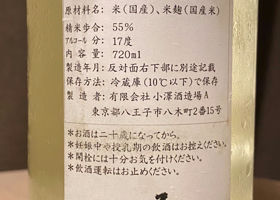 原材料名、米(国産)、米麹(国産米)
精米歩合: 55%
アルコール分: 17度
内容量: 720ml
製造年月: 反対面右下部に別途記載
保存方法: 冷蔵庫(10℃以下)で保存
製造者: 有限会社 小澤酒造場A
東京都八王子市八木町2番15号
*お酒は二十歳になってから。
*妊娠中や授乳期の飲酒はお控えください。
*開栓には十分お気を付けください。
*飲酒運転はお止めください。